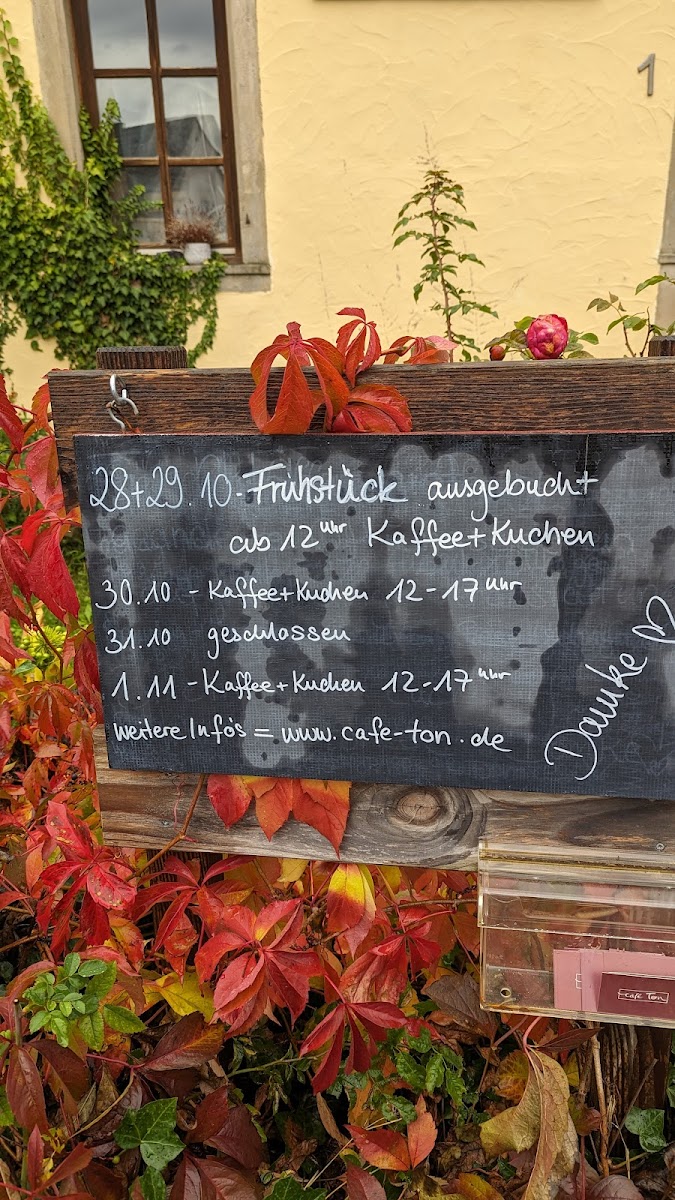 1
28+29.10-Frühstück ausgebucht
ab 12 Uhr Kaffee+Kuchen
30.10 - Kaffee+Kuchen 12-17 Uhr
31.10 geschlossen
1.11 - Kaffee+Kuchen 12-17 Uhr
weitere Info's = www.cafe-ton.de
Danke ♡
café Ton